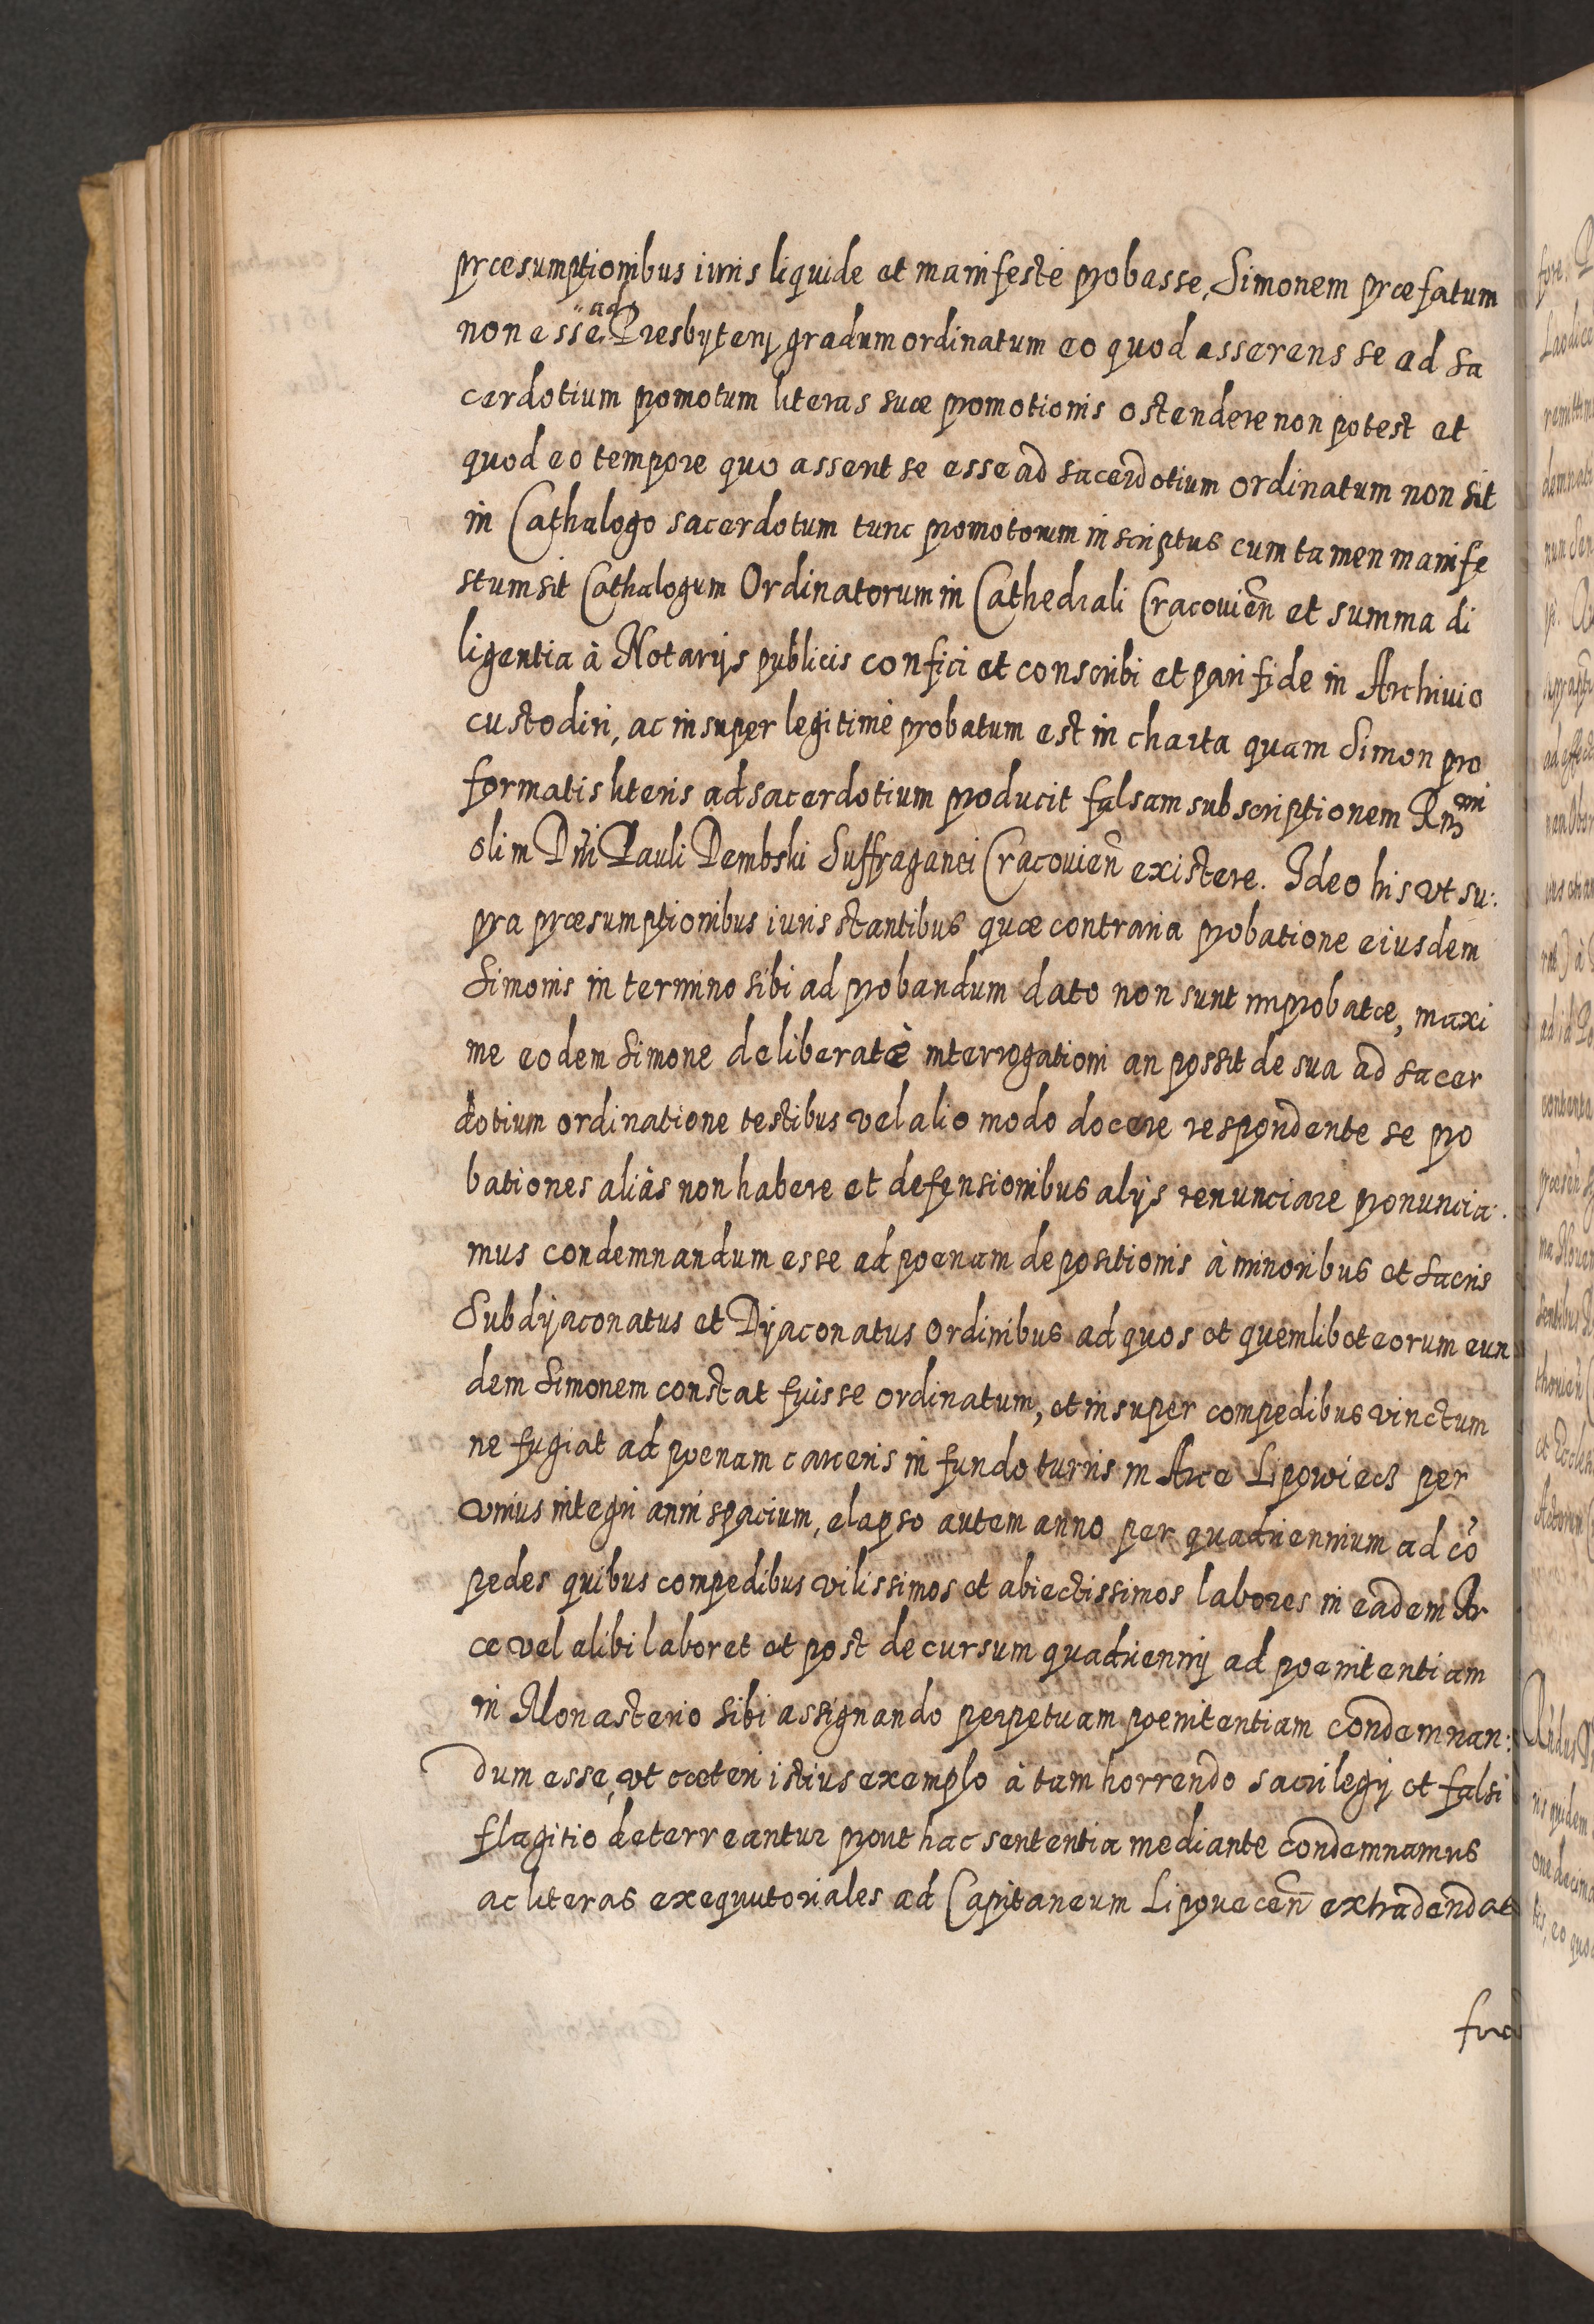 præsumptionibus iuris liquide et manifestè probasse, Simonem præfatum
non esse ad Presbyterij gradum ordinatum eo quod asserens se ad sa
cerdotium promotum literas suæ promotionis ostendere non potest et
quod eo tempore quo asserit se esse ad sacerdotium ordinatum non sit
in Cathalogo sacerdotum tunc promotorum inscriptus cum tamen manife
stum sit Cathalogum Ordinatorum in Cathedrali Cracovien̄ et summa di
ligentia à Notarijs publicis confici et conscribi et pari fide in Archivio
custodiri, ac insuper legitimè probatum est in charta quam Simon pro
formatis literis ad sacerdotium producit falsam subscriptionem Rm̄i
olim Dn̄i Pauli Dembski Suffraganei Cracovien̄ existere. Ideo his vt su:
pra præsumptionibus iuris stantibus quæ contraria probatione eiusdem
Simonis in termino sibi ad probandum dato non sunt improbatæ, maxi
me eodem Simone deliberatè interrogationi an possit de sua ad sacer
dotium ordinatione testibus vel alio modo docere respondente se pro
bationes aliàs non habere et defensionibus alijs renunciare pronuncia:
mus condemnandum esse ad poenam depositionis à minoribus et sacris
Subdyaconatus et Dyaconatus ordinibus ad quos et quemlibet eorum eun
dem Simonem constat fuisse ordinatum, et insuper compedibus vinctum
ne fugiat ad poenam carceris in fundo turris in Arce Lipowiecz per
vnius integri anni spacium, elapso autem anno per quadriennium ad co͂
pedes quibus compedibus vilissimos et abiectissimos labores in eadem Ar
ce vel alibi laboret et post decursum quadriennij ad poenitentiam
in Monasterio sibi assignando perpetuam poenitentiam condemnan:
dum esse, vt cæteri istius exemplo à tam horrendo sacrilegij et falsi
flagitio deterreantur prout hac sententia mediante condemnamus
ac literas exequutoriales ad Capitaneum Lipovecen̄ extradendas